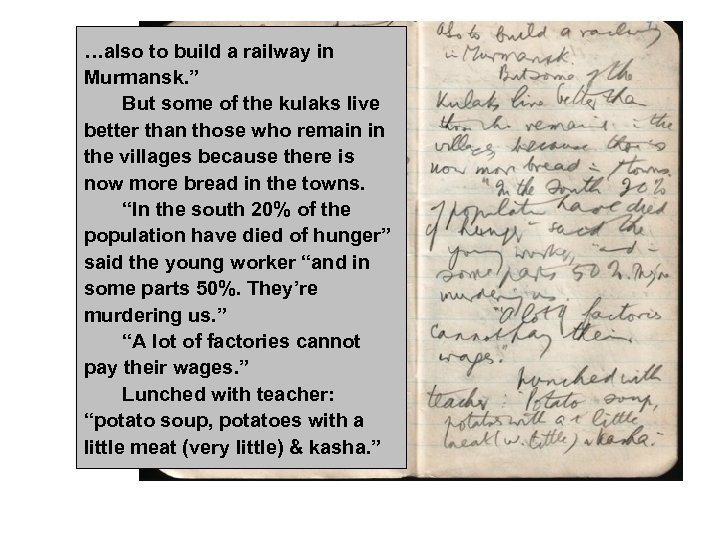 …also to build a railway in
Murmansk.”
But some of the kulaks live
better than those who remain in
the villages because there is
now more bread in the towns.
“In the south 20% of the
population have died of hunger”
said the young worker “and in
some parts 50%. They’re
murdering us.”
“A lot of factories cannot
pay their wages.”
Lunched with teacher:
“potato soup, potatoes with a
little meat (very little) & kasha.”
also to build a railway
in Murmansk.
But some of the
Kulaks live better than
those who remain in the
villages because there is
now more bread in towns.
"In the South 20%
of population have died
of hunger" said the
young worker, "and in
some parts 50%. They're
murdering us."
"A lot of factories
cannot pay their
wages."
Lunched with
teacher: Potato soup,
potatoes with a little
meat (v. little) & kasha.